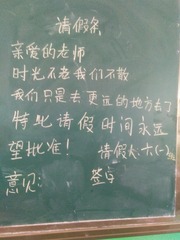 请假条
亲爱的老师
时光不老我们不散
我们只是去更远的地方去了
特此请假时间永远
望批准！ 请假人:六(一)
意见: 签字